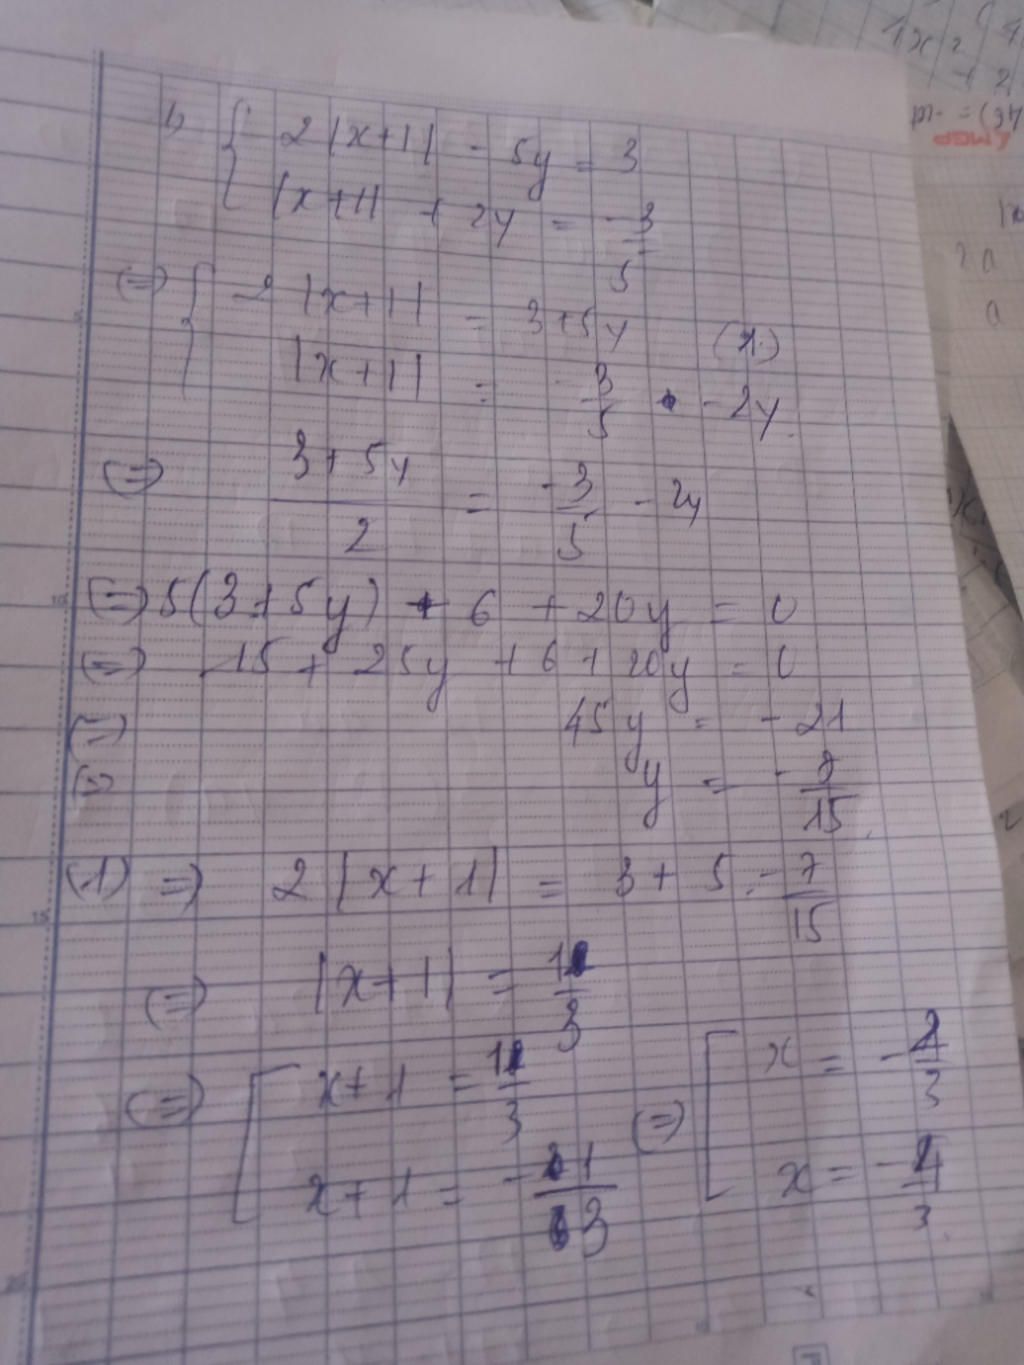 b, { 2|x+1| - 5y = 3
|x+1| + 2y = -3/5
(=) { 2|x+1| = 3+5y (1)
|x+1| = -3/5 - 2y
(=) (3+5y)/2 = -3/5 - 2y
(=) 5(3+5y) + 6 + 20y = 0
(=) 15 + 25y + 6 + 20y = 0
(=) 45y = -21
(=) y = -7/15
(1) =) 2|x+1| = 3 + 5.-7/15
(=) |x+1| = 1/3
(=) [ x+1 = 1/3 (=) [ x = -2/3
x+1 = -1/3 x = -4/3